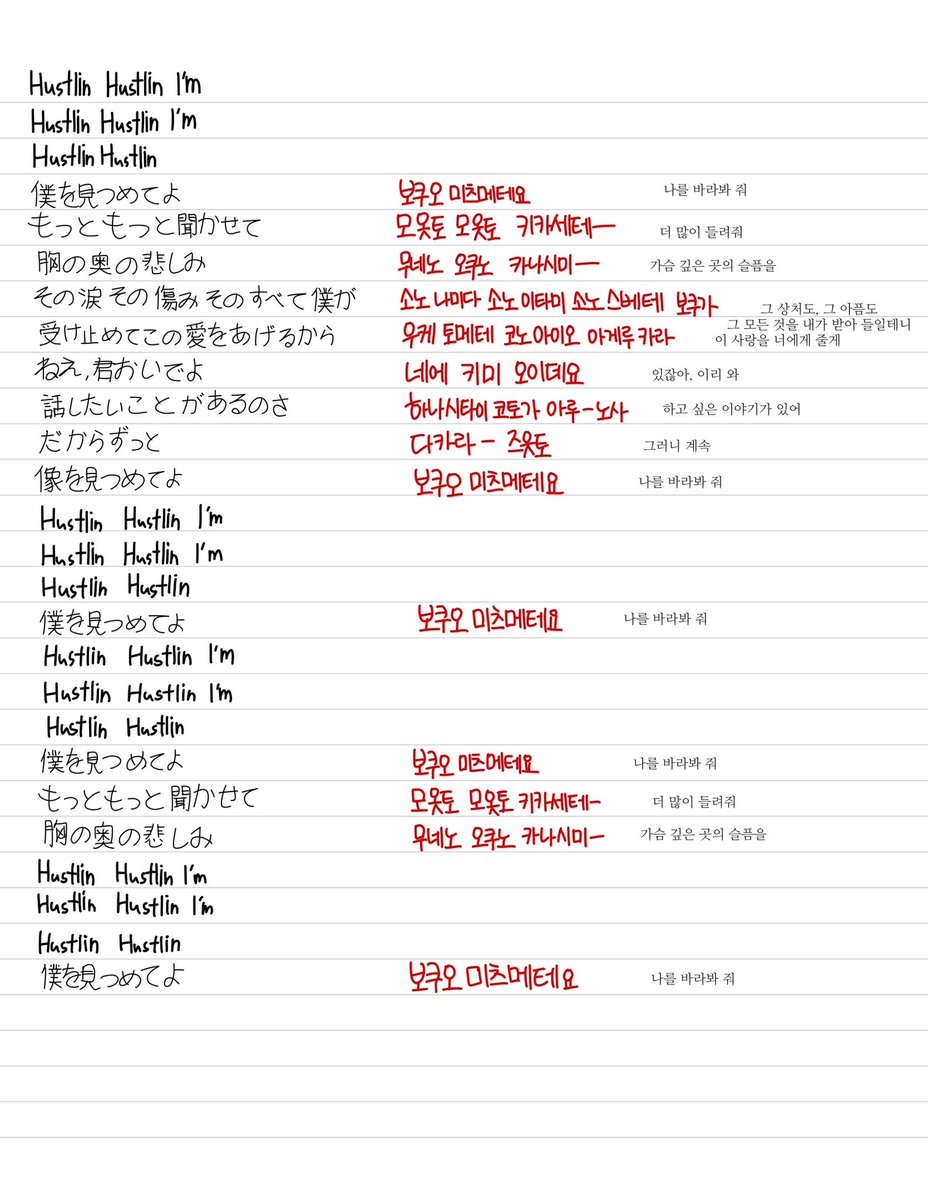 Hustlin Hustlin I'm
Hustlin Hustlin I'm
Hustlin Hustlin
僕を見つめてよ 보쿠오 미츠메테요 나를 바라봐 줘
もっともっと聞かせて 모옷토 모옷토 키카세테ー 더 많이 들려줘
胸の奥の悲しみ 무네노 오쿠노 카나시미ー 가슴 깊은 곳의 슬픔을
その涙その傷みそのすべて僕が 소노 나미다 소노 이타미 소노 스베테 보쿠가 그 상처도, 그 아픔도
그 모든 것을 내가 받아 들일테니
受け止めてこの愛をあげるから 우케 토메테 코노 아이오 아게루 카라 이 사랑을 너에게 줄게
ねえ,君おいでよ 네에 키미 오이데요 있잖아, 이리 와
話したいことがあるのさ 하나시타이 코토가 아루ー노사 하고 싶은 이야기가 있어
だからずっと 다카라ー 즈옷토 그러니 계속
像を見つめてよ 보쿠오 미츠메테요 나를 바라봐 줘
Hustlin Hustlin I'm
Hustlin Hustlin I'm
Hustlin Hustlin
僕を見つめてよ 보쿠오 미츠메테요 나를 바라봐 줘
Hustlin Hustlin I'm
Hustlin Hustlin I'm
Hustlin Hustlin
僕を見つめてよ 보쿠오 미츠메테요 나를 바라봐 줘
もっともっと聞かせて 모옷토 모옷토 키카세테ー 더 많이 들려줘
胸の奥の悲しみ 무네노 오쿠노 카나시미ー 가슴 깊은 곳의 슬픔을
Hustlin Hustlin I'm
Hustlin Hustlin I'm
Hustlin Hustlin
僕を見つめてよ 보쿠오 미츠메테요 나를 바라봐 줘